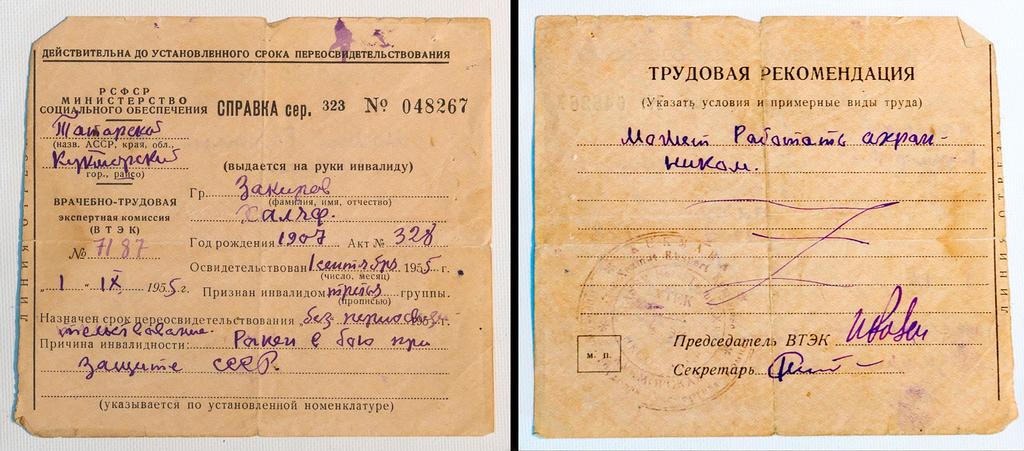 ДЕЙСТВИТЕЛЬНА ДО УСТАНОВЛЕННОГО СРОКА ПЕРЕОСВИДЕТЕЛЬСТВОВАНИЯ
РСФСР
МИНИСТЕРСТВО
СОЦИАЛЬНОГО ОБЕСПЕЧЕНИЯ
СПРАВКА сер. 323 № 048267
Татарской
(назв. АССР, края, обл.,
Кукморский
гор., район)
(выдается на руки инвалиду)
ВРАЧЕБНО-ТРУДОВАЯ
экспертная комиссия
(ВТЭК)
№ 7187
"1" IX 1955 г.
Гр. Закиров
(фамилия, имя, отчество)
Халяф.
Год рождения 1907 Акт № 328
Освидетельствован 1 сентября 1955 г.
(число, месяц)
Признан инвалидом третьей группы.
(прописью)
Назначен срок переосвидетельствования без переосвиде 195 г.
тельствования.
Причина инвалидности: Ранен в бою при
защите СССР.
(указывается по установленной номенклатуре)
ЛИНИЯ ОТРЕЗА
ТРУДОВАЯ РЕКОМЕНДАЦИЯ
(Указать условия и примерные виды труда)
Может работать ахран-
ником.
Председатель ВТЭК
Секретарь
М. П.
ВТЭК
ЛИНИЯ ОТРЕЗА